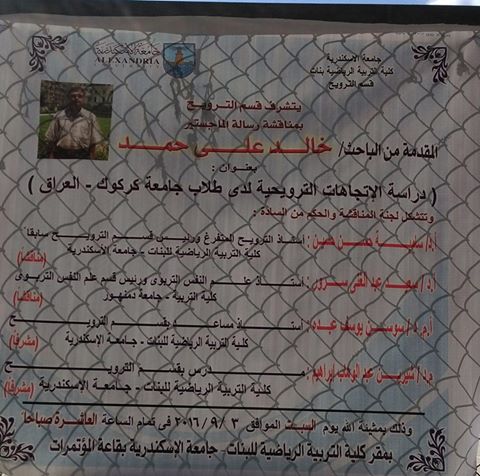 جامعة الإسكندرية
ALEXANDRIA
جامعة الاسكندرية
كلية التربية الرياضية بنات
قسم الترويح
يتشرف قسم الترويح
بمناقشة رسالة الماجستير
المقدمة من الباحث/ خالد على حمد
بعنوان :
( دراسة الإتجاهات الترويحية لدى طلاب جامعة كركوك - العراق )
وتتشكل لجنة المناقشة والحكم من السادة :
أ.د/ سامية حسن حسين : أستاذ الترويح المتفرغ ورئيس قسم الترويح سابقا
كلية التربية الرياضية للبنات - جامعة الأسكندرية (مناقشاً)
أ.د/ سعيد عبد الغنى سرور : أستاذ علم النفس التربوى ورئيس قسم علم النفس التربوى
كلية التربية - جامعة دمنهور (مناقشاً)
أ.م.د/ سوسن يوسف عبده : أستاذ مساعد بقسم الترويح
كلية التربية الرياضية للبنات - جامعة الإسكندرية (مشرفاً)
م.د/ شيرين عبد الوهاب ابراهيم : مدرس بقسم الترويح
كلية التربية الرياضية للبنات - جامعة الإسكندرية (مشرفاً)
وذلك بمشيئة الله يوم السبت الموافق ٣ /٢٠١٦/٩ فى تمام الساعة العاشرة صباحاً
بمقر كلية التربية الرياضية للبنات - جامعة الإسكندرية بقاعة المؤتمرات